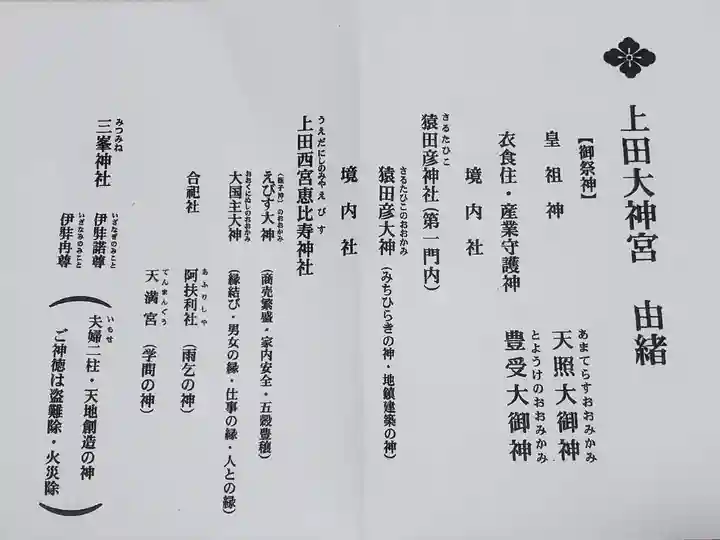 上田大神宮 由緒
【御祭神】
皇祖神 天照大御神
あまてらすおおみかみ
衣食住・産業守護神 豊受大御神
とようけのおおみかみ
境内社
猿田彦神社(第一門内)
さるたひこ
猿田彦大神(みちひらきの神・地鎮建築の神)
さるたひこのおおかみ
境内社
上田西宮恵比寿神社
うえだにしのみやえびす
えびす大神(商売繁盛・家内安全・五穀豊穣)
(蛭子神)のおおかみ
大国主大神(縁結び・男女の縁・仕事の縁・人との縁)
おおくにぬしのおおかみ
合祀社 阿扶利社(雨乞の神)
あふりしや
天満宮(学問の神)
てんまんぐう
三峯神社
みつみね
伊弉諾尊
いざなぎのみこと
伊弉冉尊
いざなみのみこと
(夫婦二柱・天地創造の神
いもせ
ご神徳は盗難除・火災除)